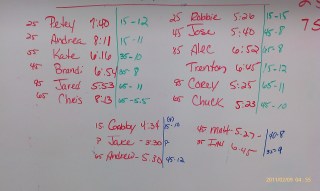 25 Petey 7:40 15-12
25 Andrea 8:11 15-11
55 Kate 6:16 35-10
45 Brandi 6:54 35-8
95 Jared 5:53 65-11
65 Chris 8:13 65-5.5
25 Robbie 5:26 15-15
45 Jose 5:40 45-8
85 Alec 6:52 65-8
Trenton 6:45 15-12
95 Corey 5:25 65-11
65 Chuck 5:23 45-10
15 Gabby 4:34 15-10
? Jake - 5:30 ?
65 Andrew - 5:50 45-12
45 Matt - 5:27 - 40-8
35 6:45 35-9